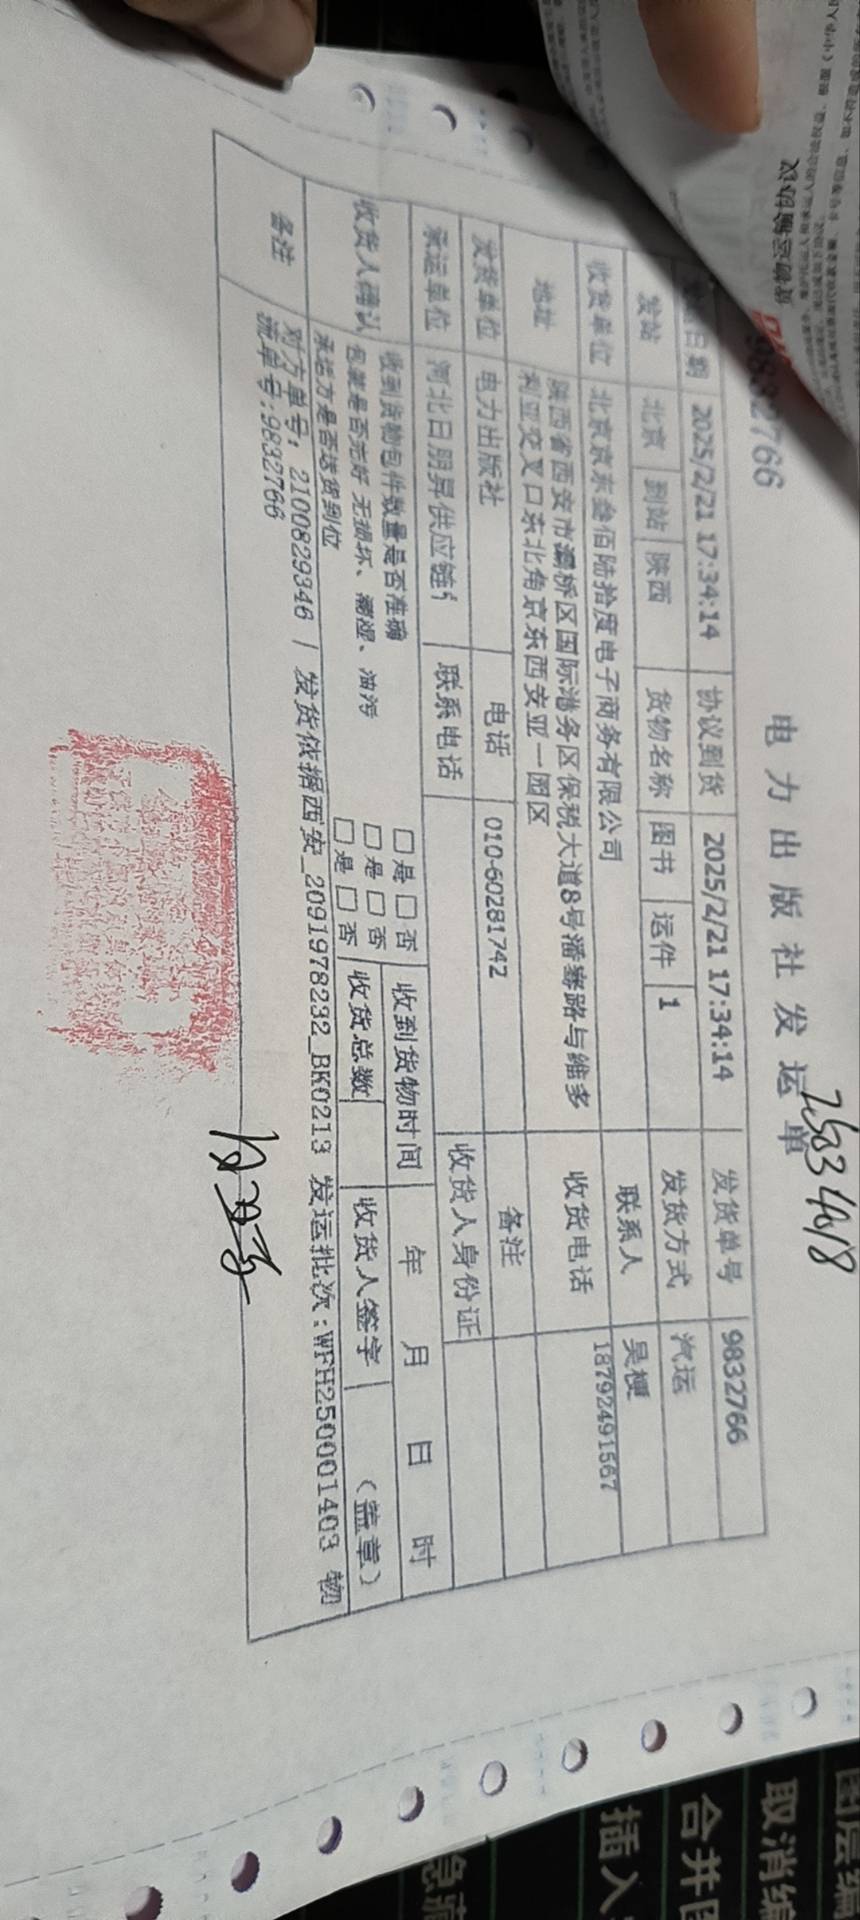 电力出版社发运单
9832766
日期 2025/2/21 17:34:14 协议到货 2025/2/21 17:34:14 发货单号 9832766
发站 北京 到站 陕西 货物名称 图书 运件 1 发货方式 汽运
收货单位 北京京东叁佰陆拾度电子商务有限公司 联系人 吴梗
地址 陕西省西安市灞桥区国际港务区保税大道8号潘骞路与维多
利亚交叉口东北角京东西安亚一园区 收货电话 18792491567
发货单位 电力出版社 电话 010-60281742 备注
承运单位 河北日朋昇供应链 联系电话 收货人身份证
收货人确认 收到货物包件数量是否准确 □是 □否 收到货物时间 年 月 日 时
包装是否完好 无损坏、潮湿、油污 □是 □否 收货总数 收货人签字 (盖章)
承运方是否送货到位 □是 □否
备注 对方单号: 2100829346 / 发货依据西安_2091978232_BK0213 发运批次:WFH2500001403 物
流单号:9832766
取消编
合并
插入